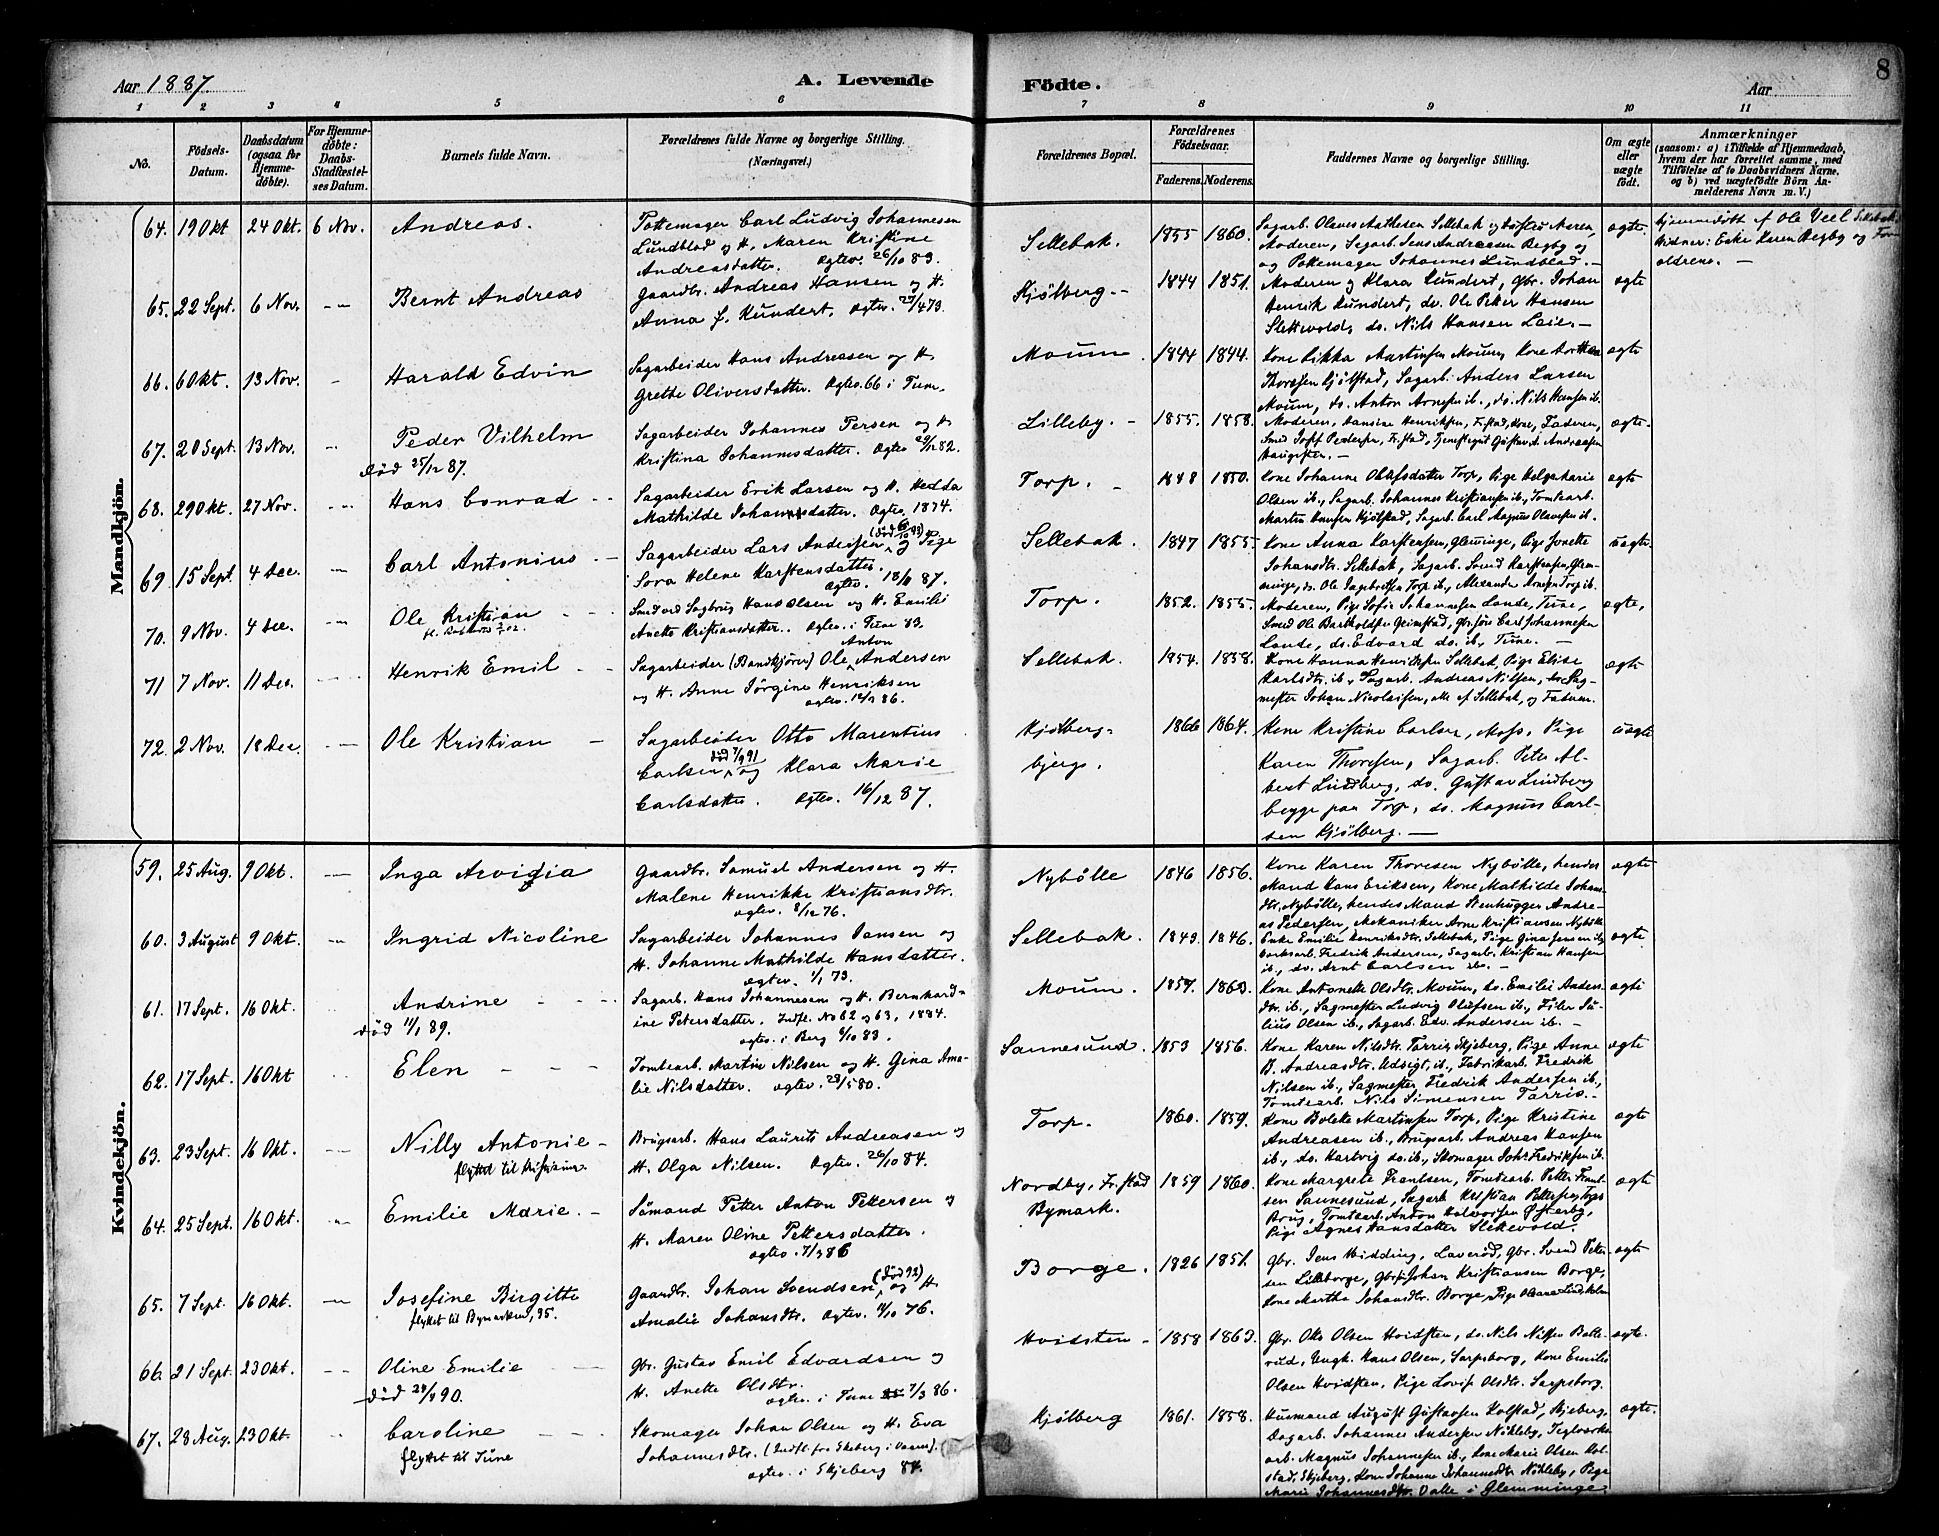 Aar 1887
A. Levende Födte.
Aar
8
1 2 3 4 5 6 7 8 9 10 11
No.
Födsels-Datum.
Daabsdatum (ogsaa for Hjemmedöbte).
For Hjemmedöbte: Daabs-Stadfæstelses Datum.
Barnets fulde Navn.
Forældrenes fulde Navne og borgerlige Stilling. (Næringsvei.)
Forældrenes Bopæl.
Forældrenes Födselsaar.
Faderens. Moderens.
Faddernes Navne og borgerlige Stilling.
Om ægte eller uægte födt.
Anmærkninger
(saasom: a) i Tilfælde af Hjemmedaab, hvem der har forrettet samme, med Tilföielse af to Daabsvidners Navne, og b) ved uægtefödte Börn Anmelderens Navn m. V.)
Mandkjön.
64. 19 Okt 24 Okt. 6 Nov. Andreas.
Pottemager Carl Ludvig Johannesen
Lundblad og H. Maren Kristine
Andreasdatter. Ægtev. 26/10 83.
Sellebak. 1855 1860.
Moderen, Sagarb. Jens Andreasen Begby og
og Pottemager Johannes Lundblad. –
ægte.
Hjemmedöbt af Ole Veel Sellebak
Vidner: Enke Karen Begby og For-
ældrene. –
65. 22 Sept. 6 Nov. Bernt Andreas
Gaardbr. Andreas Hansen og H.
Anna f. Kundert. Ægtev.
Kjölberg. – 1844 1851.
Moderen og Klara Kundert, Gbr. Johan
Henrik Kundert, do. Ole Peter Hansen
Slettevold, do. Nils Hansen Leie. –
ægte
66. 6 Okt. 13 Nov. Harald Edvin
Sagarbeider Hans Andreasen og H.
Grethe Oliversdatter. Ægtev. 66 i Tune.
Moum. 1844 1844.
Thoresen Kjölstad, Sagarb. Anders Larsen
Moum, do. Anton Arnesen ib., do. Nils Hansen ib.
ægte
67. 20 Sept. 13 Nov. Peder Vilhelm
Död 25/12 87.
Sagarbeider Johannes Persen og H.
Kristina Johannesdatter. Ægtev. 29/12 82.
Lilleby. – 1855. 1858.
Moderen, Hansine Henriksen, Fr.stad, Kone, Faderen,
Smed Josef Pedersen, Fr.stad, Tjenestegut Gustav A. Andreasen
Haugesten. –
ægte.
68. 29 Okt. 27 Nov. Hans Conrad
Sagarbeider Erik Larsen og H. Hedda
Mathilde Johannesdatter. Ægtev. 1874.
Torp. – 1848 1850.
Kone Johanne Olafsdatter Torp, Pige Helga Marie
Olsen ib., Sagarb. Johannes Kristiansen ib., Tomtearb.
Martin Hansen Kjölstad, Sagarb. Carl Magnus Olavesen ib.
ægte
69. 15 Sept. 4 Dec. Carl Antonius
Sagarbeider Lars Andersen og Pige
Lova Helene Karstensdatter.
Ægtev. 18/11 87.
Sellebak. 1847 1855.
Kone Anna Karstensen, Glemminge, Pige Jonette
Johansdtr. Sellebak, Sagarb. Svend Karstensen, Glem-
minge, do. Ole Ingebretsen Torp ib., Alexander Arnesen Torp ib.
uægte.
70. 9 Nov. 4 Dec. Ole Kristian
Smed ved Sagbrug Hans Olsen og H. Emilie
Anette Kristiansdatter. Ægtev. i Tune 83.
Torp. 1852. 1855.
Moderen, Pige Sofie Johannesen Lande, Tune,
Smed Ole Bartholdsen Grimstad, Gbr. sön Carl Johannesen
Lande, do. Edvard do. ib., Tune. –
ægte,
71 7 Nov. 11 Dec. Henrik Emil
Sagarbeider (Baandkjører) Ole Anton Andersen
og H. Anne Jörgine Henriksen
ægtev. 86.
Sellebak. 1854. 1858.
Kone Hanna Henriksen Sellebak, Pige Elise
Karlsdtr. ib., Sagarb. Andreas Nilsen, do. Sag-
mester Johan Nicolaisen, alle af Sellebak, og Faderen.
ægte
72. 2 Nov. 18 Dec. Ole Kristian
Sagarbeider Otto Marentius
Carlsen, (död 7/9 91) og Klara Marie
Carlsdatter. Ægtev. 16/12 87.
Kjölberg-
bjerg. 1866 1864.
Kone Kristine Carlsen, Moss, Pige
Karen Thoresen, Sagarb. Peter Al-
bert Lindberg, do. Gustav Lindberg
begge paa Torp, do. Magnus Carl-
sen Kjölberg. –
uægte
Kvindekjön.
59. 25 Aug. 9 Okt. Inga Arvigia
Gaardbr. Samuel Andersen og H.
Malene Henrikke Kristiansdtr.
ægtev. 8/12 76.
Nybölle 1846 1856.
Kone Karen Thoresen Nybölle, hendes
Mand Hans Eriksen, Kone Mathilde Johans-
dtr. Nybölle, hendes Mand Stenhugger Andre-
as Pedersen, Mekaniker Arne Kristiansen Nybölle
ægte
60. 3 August 9 Okt. Ingrid Nicoline
Sagarbeider Johannes Jansen og
H. Johanne Mathilde Hansdatter.
ægtev. 1/1 73.
Sellebak. 1843. 1846.
Enke Emilie Henriksdtr. Sellebak, Pige Gina Jensen ib.,
Værksarb. Fredrik Andersen, Sagarb. Kristian Hansen
ib., do. Arnt Carlsen ib. –
ægte.
61. 17 Sept. 16 Okt. Andrine
Död 11/1 89.
Sagarb. Hans Johannesen og H. Bernhard-
ine Petersdatter. Indfl. No 62 og 63, 1884.
ægtev. i Berg 6/10 83.
Moum. 1857. 1863.
Kone Antonette Olsdtr. Moum, do. Emilie Anders-
dtr. ib., Sagmester Ludvig Olafsen ib., Filer Ju-
lius Olsen ib., Sagarb. Edv. Andersen ib. –
ægte
62. 17 Sept. 16 Okt Elen
Tomtearb. Martin Nilsen og H. Gina Ama-
lie Nilsdatter. ægtev. 28/5 80.
Sannesund. 1853 1856.
Kone Karen Nilsdtr. Tarris, Skjeberg, Pige Anne
B. Andreasdtr. Udsigt, ib., Fabrikarb. Fredrik
Nilsen ib., Sagmester Fredrik Andersen ib.,
Tomtearb. Nils Simensen Tarris. –
ægte
63. 23 Sept. 16 Okt. Nilly Antonie –
flyttet til Kristiania.
Brugsarb. Hans Laurits Andreasen og
H. Olga Nilsen. Ægtev. 26/10 84.
Torp. 1860. 1859.
Kone Bolette Martinsen Torp, Pige Kristine
Andreasen ib., Brugsarb. Andreas Hansen
ib., do. Hartvig do. ib., Skomager Johs. Fredriksen ib.
ægte
64. 25 Sept. 16 Okt. Emilie Marie. –
Sömand Petter Anton Pettersen og
H. Maren Oline Pettersdatter.
ægtev. 7/3 86
Nordby, Fr.stad
Bymark. 1859 1860.
Kone Margrete Frantsen, Tomtearb. Petter Frant-
sen Sannesund, Sagarb. Kristian Pettersen Torps
Brug, Tomtearb. Anton Halvorsen Østerby,
Pige Agnes Hansdatter Slettevold.
ægte
65. 7 Sept. 16 Okt. Josefine Birgitte
flyttet til Bymarken, 95.
Gaardbr. Johan Svendsen (död 92) og H.
Amalie Johansdtr. Ægtev. 11/10 76.
Borge. 1826 1851.
Gbr. Jens Hidding, Laveröd, Gbr. Svend Peter-
sen Lilleborge, Gbr. Johan Kristiansen Borge,
Kone Martha Johansdtr. Borge, Pige Olava Lindholm
ægte
66. 21 Sept. 23 Okt. Oline Emilie
Död 28/8 90.
Gbr. Gustav Emil Edvardsen og
H. Anette Olsdtr.
ægtev. i Tune 7/3 86.
Hvidsten – 1858 1863.
Gbr. Otto Olsen Hvidsten, do. Nils Nilsen Balle-
rud, Ungk. Hans Olsen, Sarpsborg, Kone Emilie
Olsen Hvidsten, Pige Lovise Olsdtr. Sarpsborg.
ægte.
67. 28 Aug. 23 Okt Caroline
flyttet til Tune
Skomager Johan Olsen og H. Eva
Johannesdtr. (Indfl. fra Skeberg i Varm).
ægtev. i Skjeberg 84.
Kjölberg 1861. 1858.
Husmand August Gustavsen Kolstad, Skjeberg,
Dagarb. Johannes Andersen Nökleby, Teglværks-
arb. Magnus Johannesen ib., Kone Marie Olsen Kol-
stad, Skjeberg, Kone Johanne Johannesdtr Nökleby, Pige
Marie Johannesdtr. Valle i Glemminge
ægte.